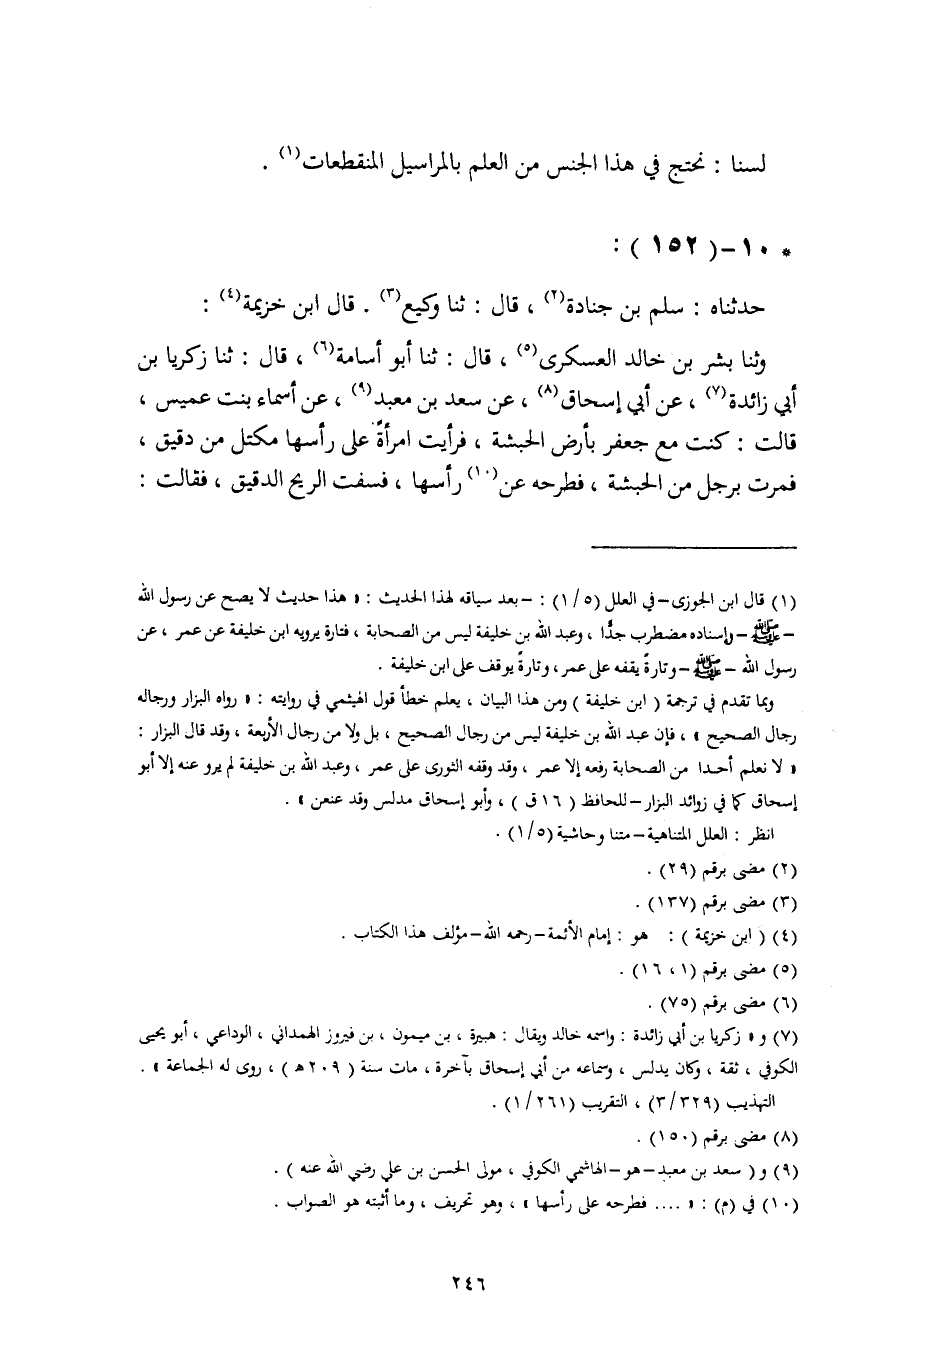 لسنا : نحتج في هذا الجنس من العلم بالمراسيل المنقطعات(١) .
* ١٠-( ١٥٢ ) :
حدثناه : سلم بن جنادة(٢) ، قال : ثنا وكيع(٣) . قال ابن خزيمة(٤) :
وثنا بشر بن خالد العسكرى(٥) ، قال : ثنا أبو أسامة(٦) ، قال : ثنا زكريا بن
أبي زائدة(٧) ، عن أبي إسحاق(٨) ، عن سعد بن معبد(٩) ، عن أسماء بنت عميس ،
قالت : كنت مع جعفر بأرض الحبشة ، فرأيت امرأةً على رأسها مكتل من دقيق ،
فمرت برجل من الحبشة ، فطرحه عن(١٠) رأسها ، فسفت الريح الدقيق ، فقالت :
(١) قال ابن الجوزى-في العلل (١/٥) : -بعد سياقه لهذا الحديث : « هذا حديث لا يصح عن رسول الله
-ﷺ-وإسناده مضطرب جدًّا ، وعبد الله بن خليفة ليس من الصحابة ، فتارة يرويه ابن خليفة عن عمر ، عن
رسول الله -ﷺ-وتارةً يقفه على عمر، وتارةً يوقف على ابن خليفة .
وبما تقدم في ترجمة ( ابن خليفة ) ومن هذا البيان ، يعلم خطأ قول الهيثمي في روايته : « رواه البزار ورجاله
رجال الصحيح » ، فإن عبد الله بن خليفة ليس من رجال الصحيح ، بل ولا من رجال الأربعة ، وقد قال البزار :
« لا نعلم أحدا من الصحابة رفعه إلا عمر ، وقد وقفه الثورى على عمر ، وعبد الله بن خليفة لم يرو عنه إلا أبو
إسحاق كما في زوائد البزار-للحافظ ( ١٦ق ) ، وأبو إسحاق مدلس وقد عنعن » .
انظر : العلل المتناهية-متنا وحاشية (١/٥) .
(٢) مضى برقم (٢٩) .
(٣) مضى برقم (١٣٧) .
(٤) ( ابن خزيمة ) : هو : إمام الأئمة-رحمه الله-مؤلف هذا الكتاب .
(٥) مضى برقم (١ ، ١٦) .
(٦) مضى برقم (٧٥) .
(٧) و « زكريا بن أبي زائدة : واسمه خالد ويقال : هبيرة ، بن ميمون ، بن فيروز الهمداني ، الوداعي ، أبو يحيى
الكوفي ، ثقة ، وكان يدلس ، وسماعه من أبي إسحاق بآخرة ، مات سنة ( ٢٠٩هـ ) ، روى له الجماعة » .
التهذيب (٣/٣٢٩) ، التقريب (١/٢٦١) .
(٨) مضى برقم (١٥٠) .
(٩) و( سعد بن معبد-هو-الهاشمي الكوفي ، مولى الحسن بن علي رضي الله عنه ) .
(١٠) في (م) : « .... فطرحه على رأسها » ، وهو تحريف ، وما أثبته هو الصواب .
٢٤٦